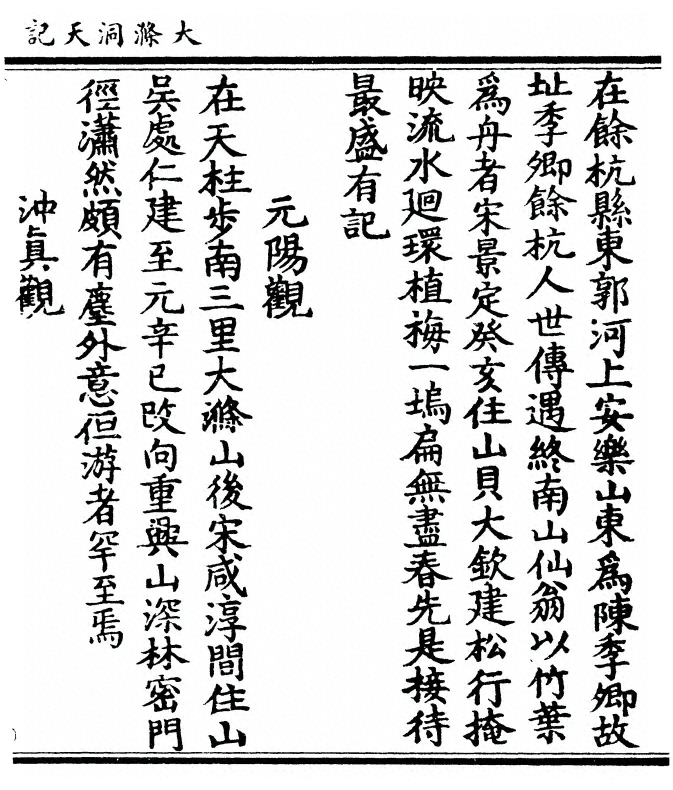 大滌洞天記
在餘杭縣東郭河上安樂山東爲陳季卿故
址季卿餘杭人世傳遇終南山仙翁以竹葉
爲舟者宋景定癸亥住山貝大欽建松行掩
映流水廻環植梅一塢扁無盡春先是接待
最盛有記
元陽觀
在天柱步南三里大滌山後宋咸淳間住山
吳處仁建至元辛巳改向重興山深林密門
徑瀟然頗有塵外意但游者罕至焉
沖眞觀